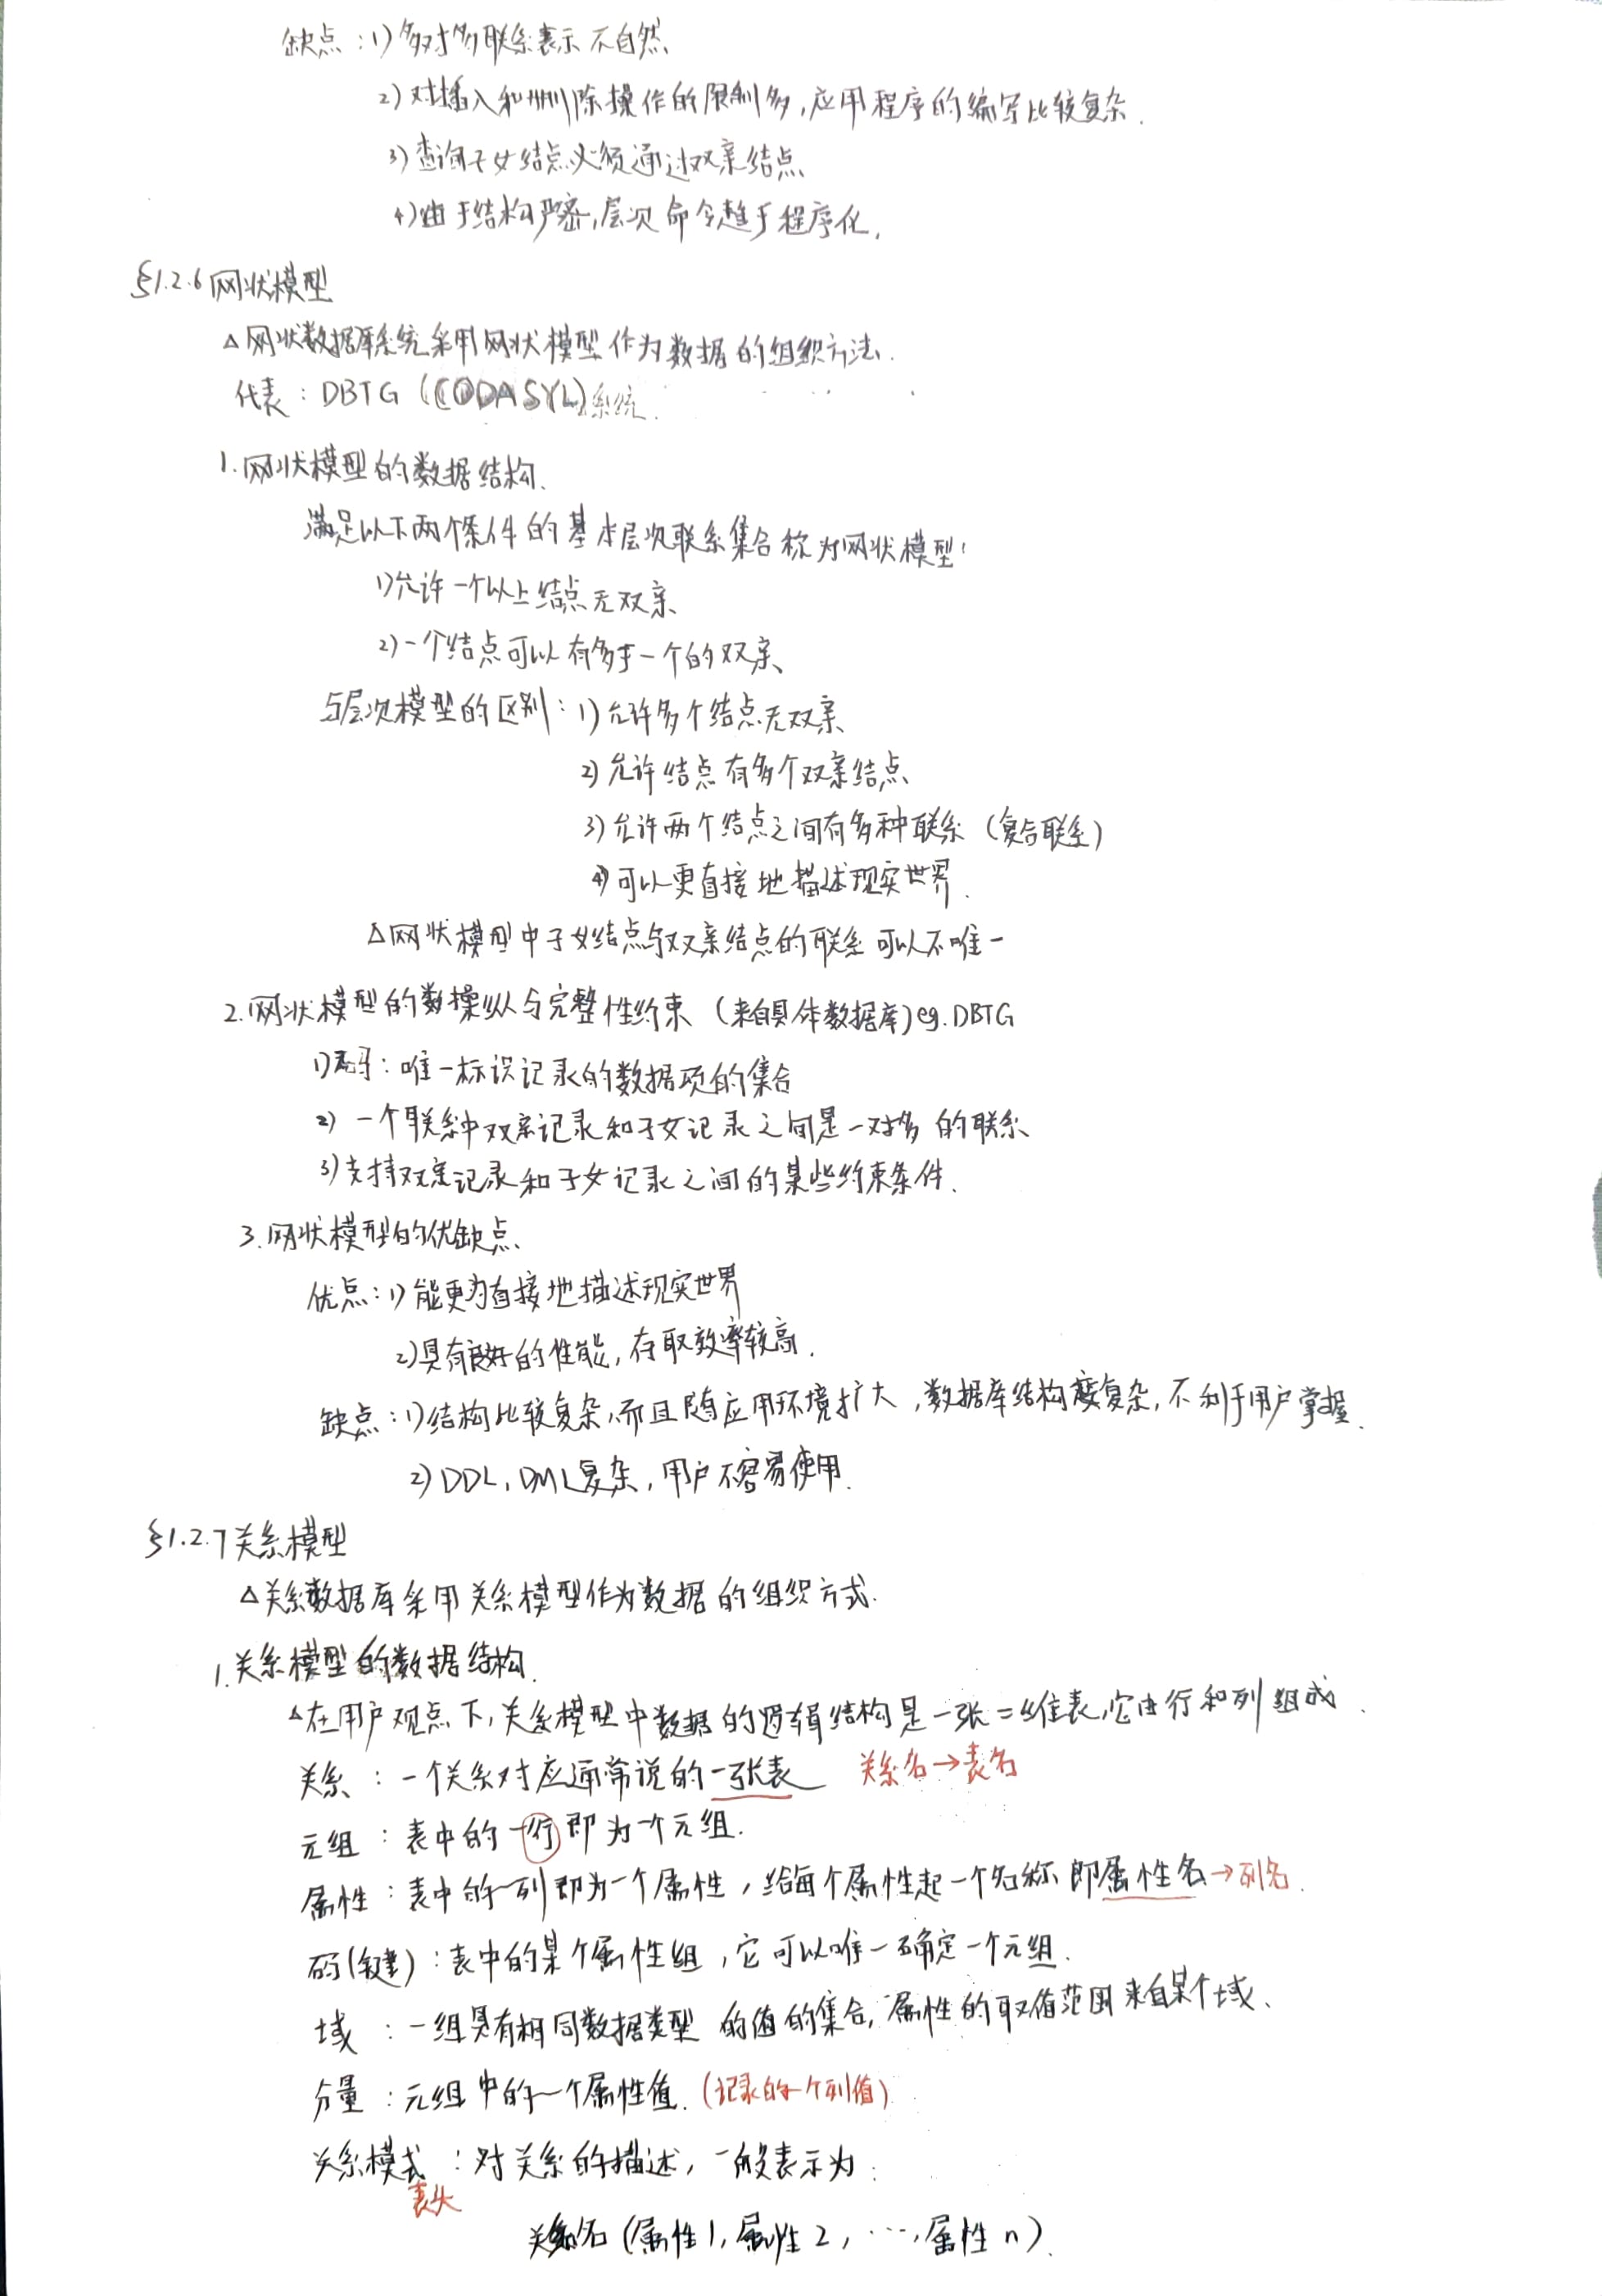 缺点：1) 多对多联系表示不自然
2) 对插入和删除操作的限制多，应用程序的编写比较复杂.
3) 查询子女结点必须通过双亲结点
4) 由于结构严密，层次命令趋于程序化.
§1.2.6 网状模型
△网状数据库系统采用网状模型作为数据的组织方法.
代表：DBTG (CODASYL)系统.
1.网状模型的数据结构.
满足以下两个条件的基本层次联系集合称为网状模型：
1)允许一个以上结点无双亲
2)一个结点可以有多于一个的双亲
与层次模型的区别：1)允许多个结点无双亲
2)允许结点有多个双亲结点
3)允许两个结点之间有多种联系（复合联系）
4)可以更直接地描述现实世界.
△网状模型中子女结点与双亲结点的联系可以不唯一
2.网状模型的数操纵与完整性约束（来自具体数据库）eg.DBTG
1)码：唯一标识记录的数据项的集合
2) 一个联系中双亲记录和子女记录之间是一对多的联系
3)支持双亲记录和子女记录之间的某些约束条件.
3.网状模型的优缺点
优点：1)能更为直接地描述现实世界
2)具有良好的性能，存取效率较高.
缺点：1)结构比较复杂，而且随应用环境扩大，数据库结构变复杂，不利于用户掌握.
2) DDL，DML复杂，用户不容易使用.
§1.2.7 关系模型
△关系数据库采用关系模型作为数据的组织方式.
1.关系模型的数据结构.
△在用户观点下，关系模型中数据的逻辑结构是一张二维表，它由行和列组成.
关系：一个关系对应通常说的一张表 关系名→表名
元组：表中的一行即为一个元组.
属性：表中的一列即为一个属性，给每个属性起一个名称即属性名→列名.
码(键)：表中的某个属性组，它可以唯一确定一个元组.
域：一组具有相同数据类型的值的集合，属性的取值范围来自某个域.
分量：元组中的一个属性值.（记录的一个列值）
关系模式：对关系的描述，一般表示为：
表头
关系名（属性1，属性2，…，属性n）.